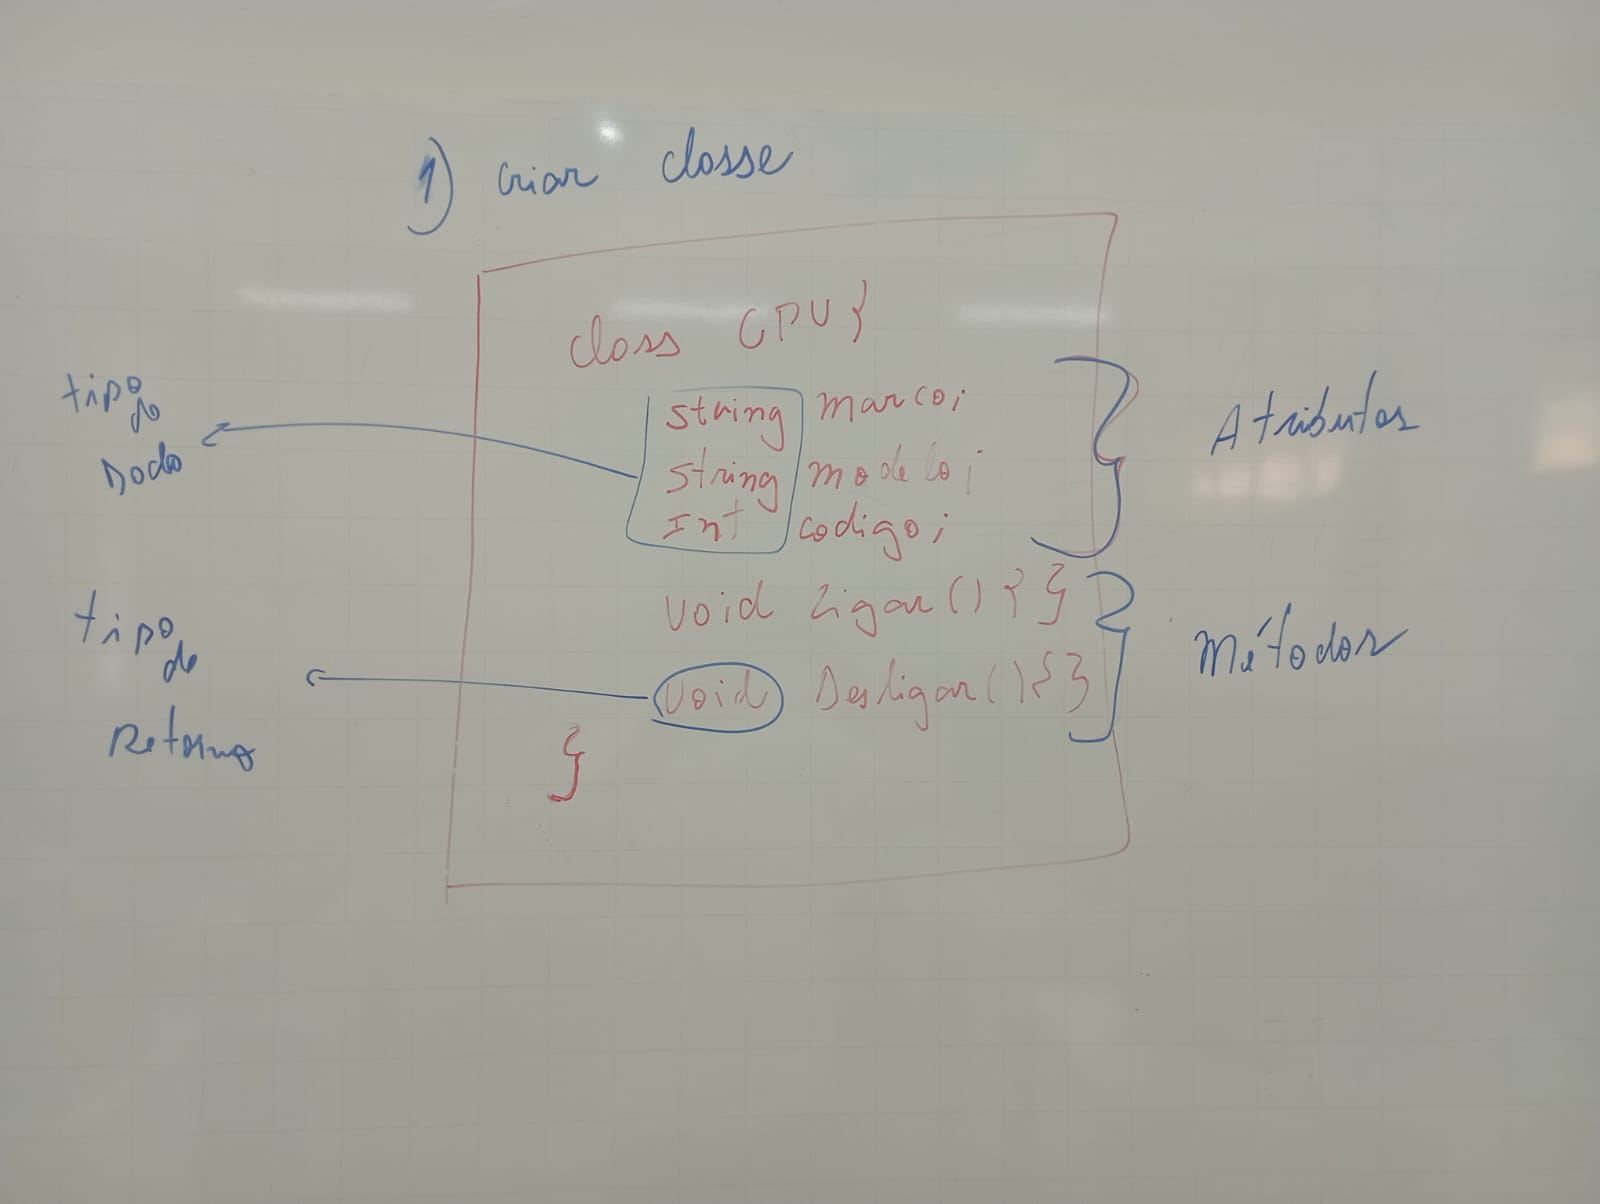 1) criar classe
class CPU{
string marca;
string modelo;
Int codigo;
void Ligar(){ }
void Desligar(){ }
}
tipo
do
Dado
tipo
de
Retorno
Atributos
Métodos